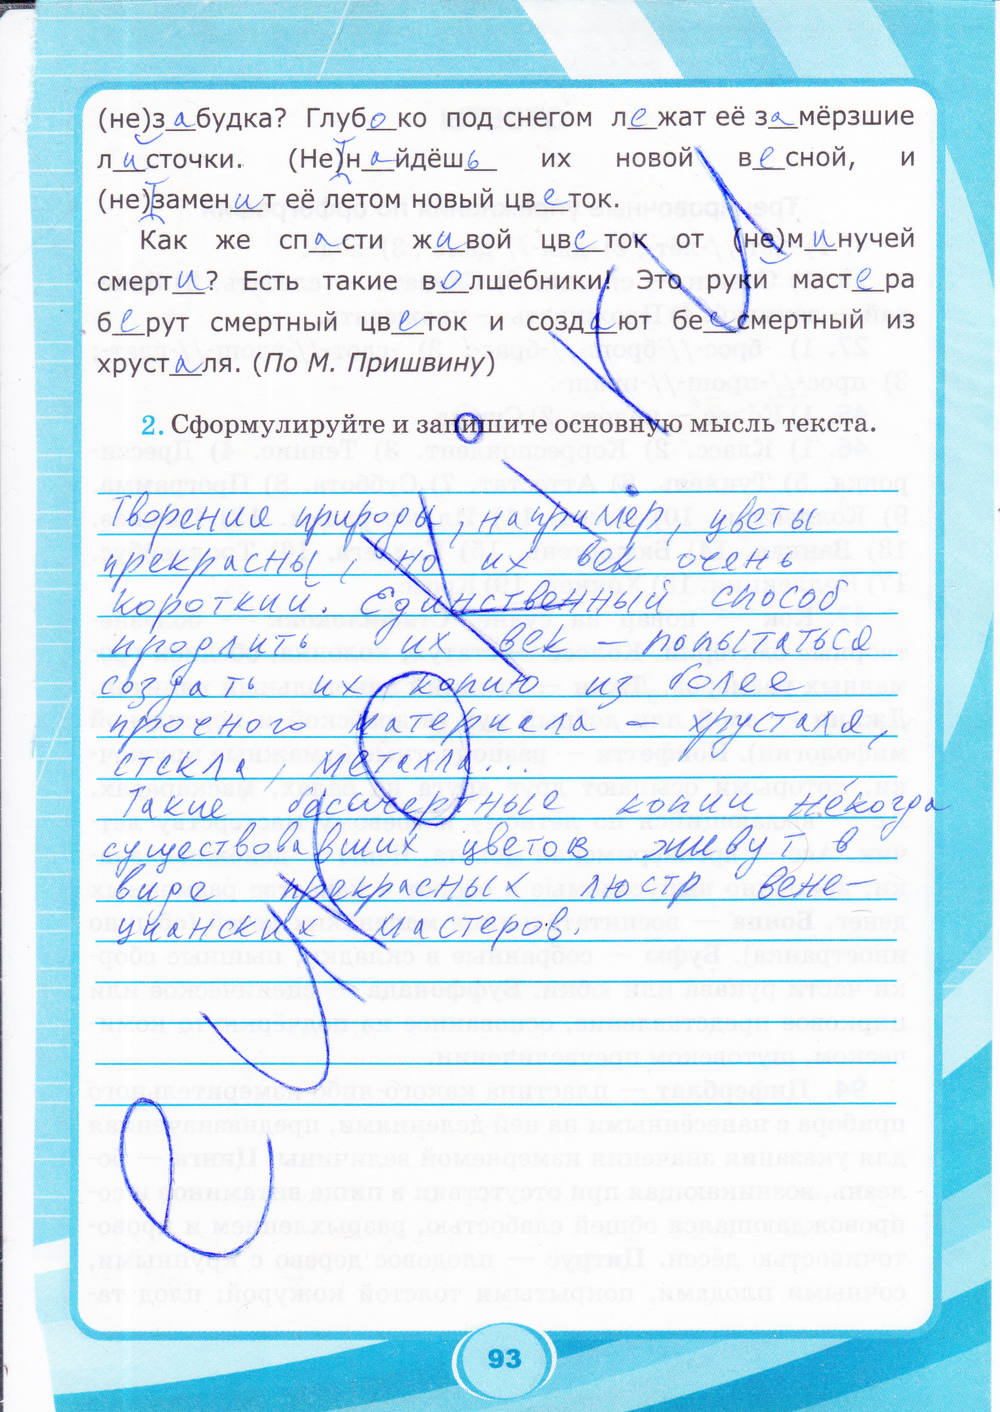 (не)забудка? Глубоко под снегом лежат её замёрзшие
листочки. (Не)найдёшь их новой весной, и
(не)заменит её летом новый цветок.
Как же спасти живой цветок от (не)минучей
смерти? Есть такие волшебники! Это руки мастера
берут смертный цветок и создают бессмертный из
хрусталя. (По М. Пришвину)
2. Сформулируйте и запишите основную мысль текста.
Творения природы, например, цветы
прекрасны, но их век очень
короткий. Единственный способ
продлить их век – попытаться
создать их копию из более
прочного материала – хрусталя,
стекла, металла...
Такие бессмертные копии некогда
существовавших цветов живут в
виде прекрасных люстр вене-
цианских мастеров.
93